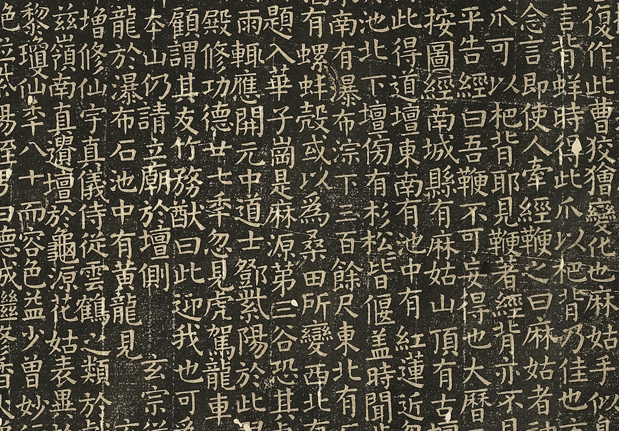 復作此曹狡獪變化也麻姑手似
言背蛘時得此爪以杷背乃佳也
念言即使人牽經鞭之曰麻姑者
爪可以杷背耶見鞭著經背亦不見
平告經曰吾鞭不可妄得也大曆
按圖經南城縣有麻姑山頂有古壇
此得道壇東南有池中有紅蓮近忽
池北下壇傍有杉松皆偃蓋時聞
東南有瀑布淙下三百餘尺東北有石
有螺蚌殼或以為桑田所變西北有
題入華子崗是麻源第三谷恐其
雨輒應開元中道士鄧紫陽於此
殿修功德廿七年忽見虎駕龍車
顧謂其友竹務猷曰此迎我也可為
本山仍請立廟於壇側 玄宗從
龍於瀑布石池中有黃龍見
增修仙宇真儀侍從雲鶴之類於戲
茲嶺南真遺壇於龜源花姑表異
黎瓊仙年八十而容色益少曾妙行